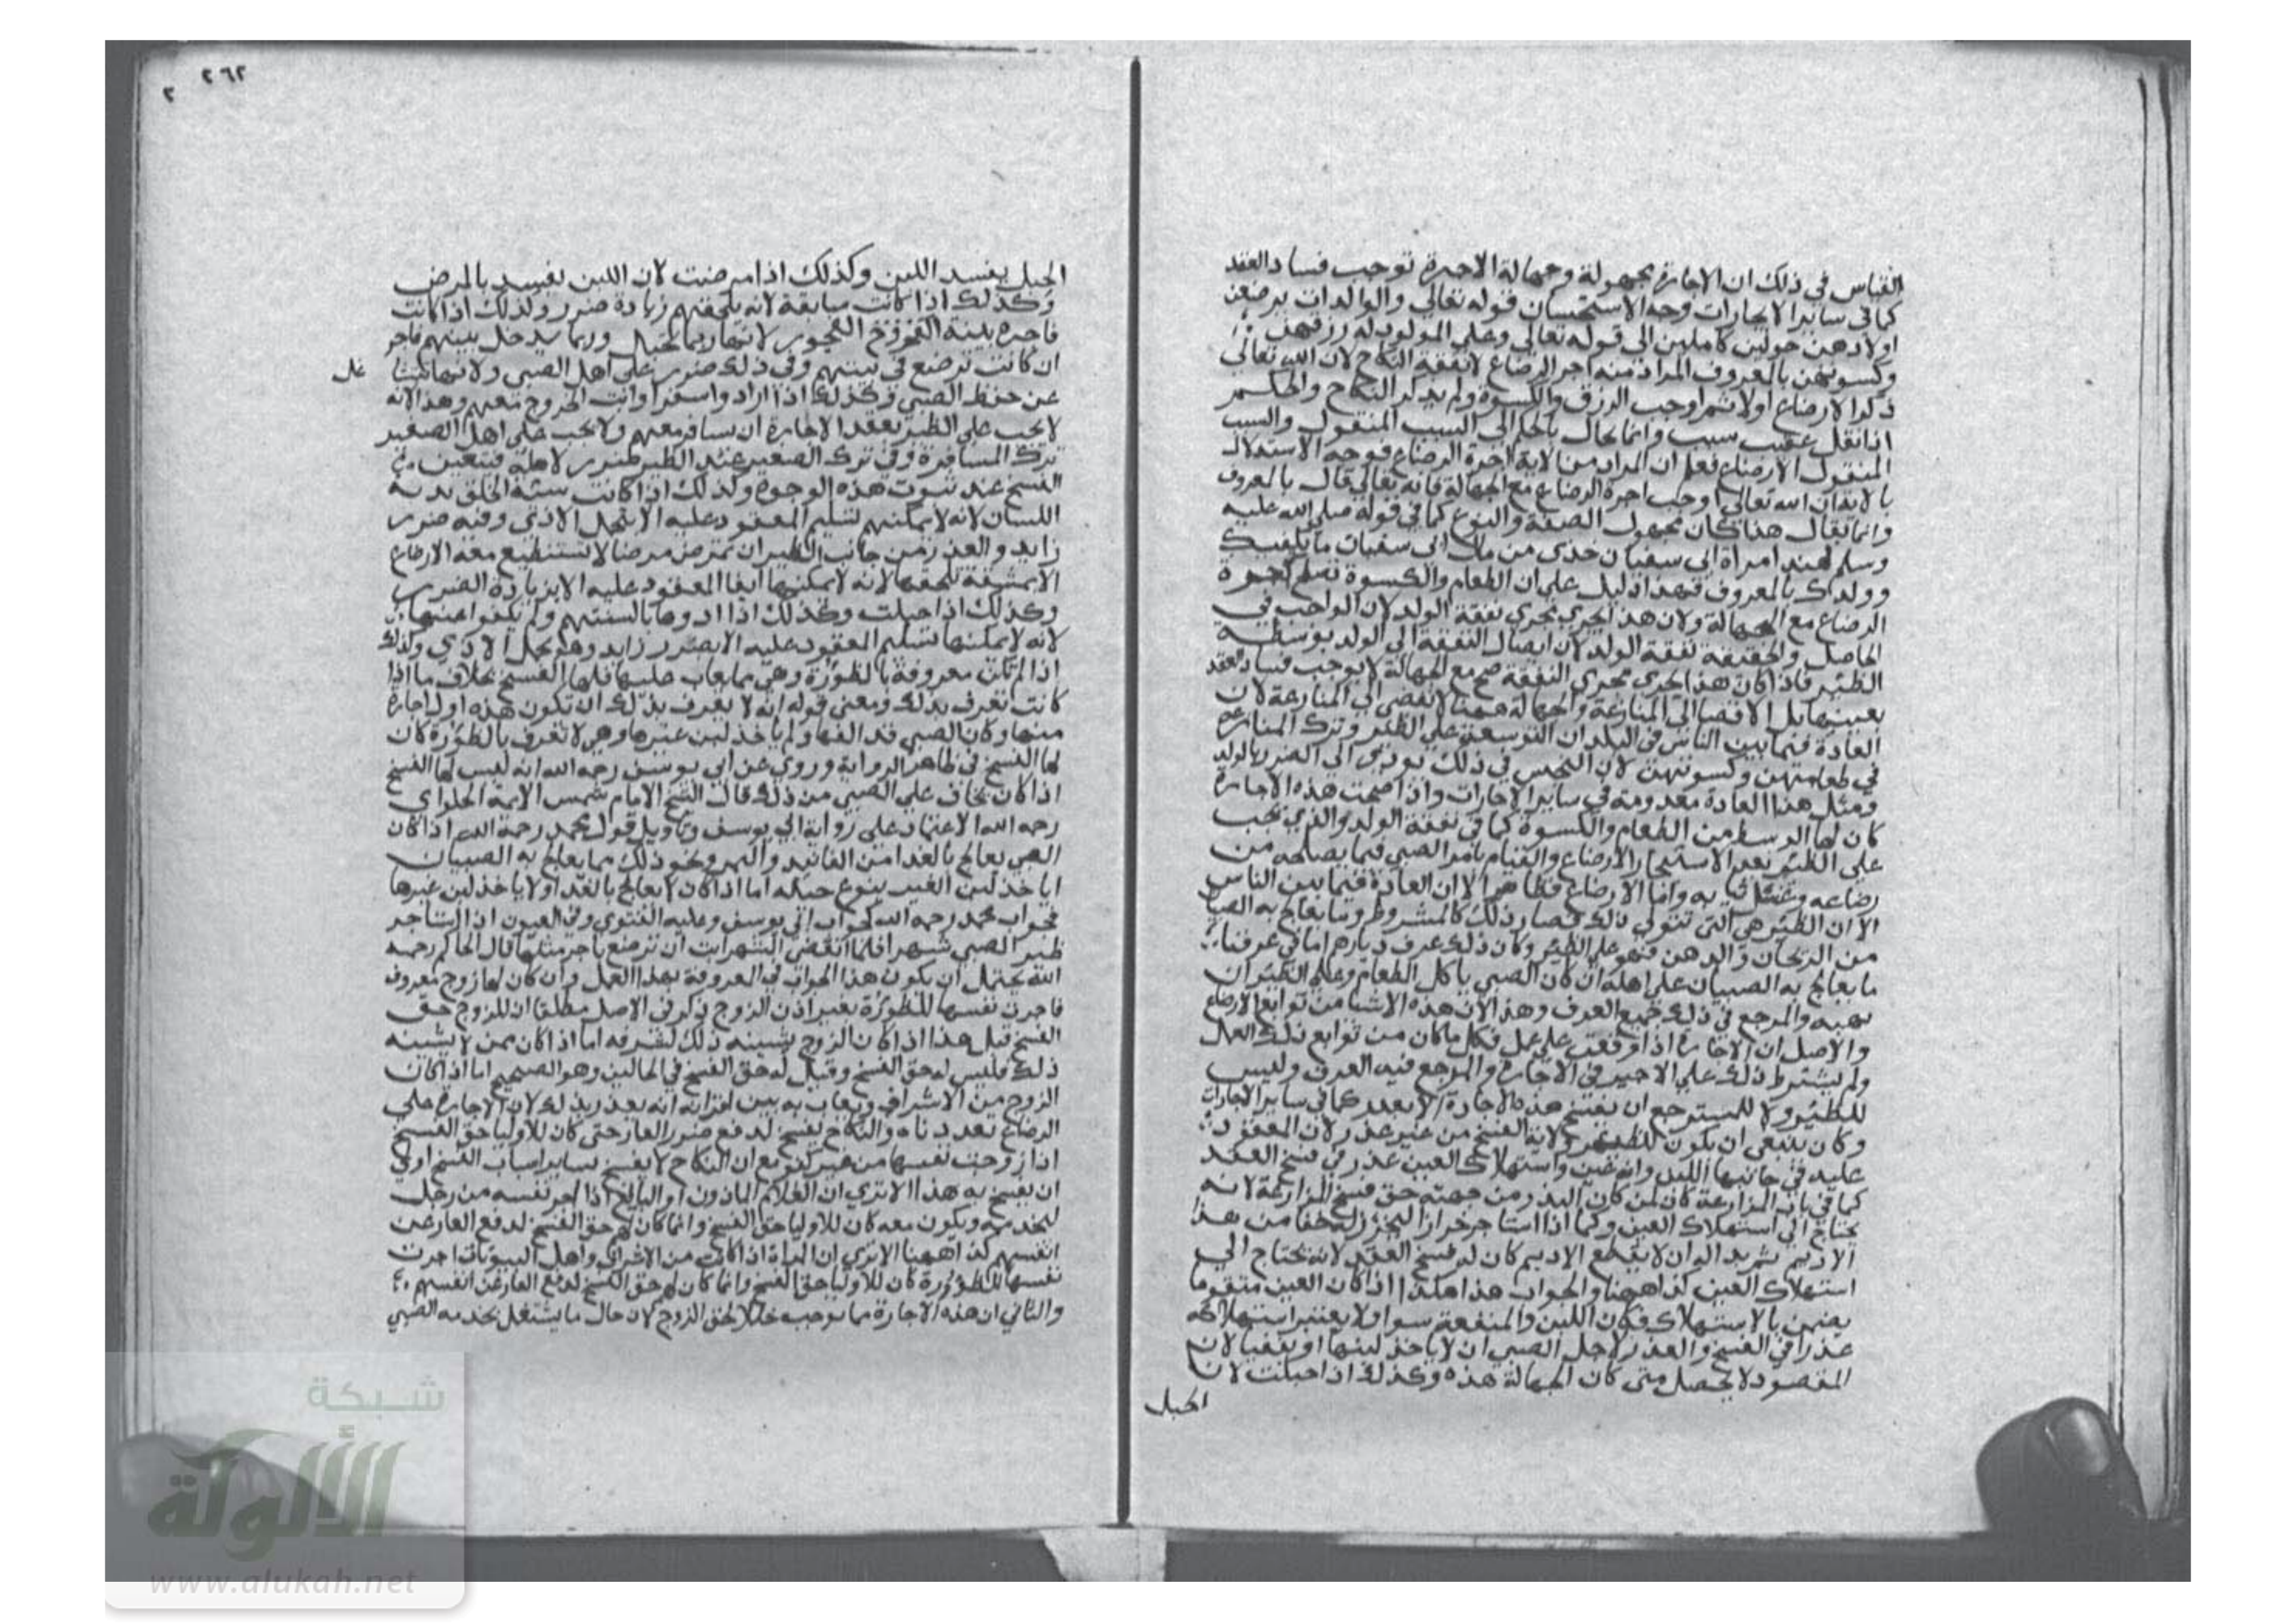 القياس في ذلك ان الاجارة مجهولة وجهالة الاجرة توجب فساد العقد
كما في ساير الاجارات وجه الاستحسان قوله تعالى والوالدات يرضعن
اولادهن حولين كاملين الى قوله تعالى وعلى المولود له رزقهن
وكسوتهن بالمعروف المراد منه اجر الرضاع لا نفقة النكاح لان الله تعالى
ذكر الارضاع اولا ثم اوجب الرزق والكسوة ولم يذكر النكاح والحكم
اذا نقل عقيب سبب وانما يحال بالحكم الى السبب المنقول والسبب
المنقول الارضاع فعلم ان المراد من الاية اجرة الرضاع فوجه الاستدلال
بالاية ان الله تعالى اوجب اجرة الرضاع مع الجهالة فانه تعالى قال بالمعروف
وانما يقال هذا كان مجهول الصفة والنوع كما في قوله صلى الله عليه
وسلم لهند امراة ابي سفيان خذي من مال ابي سفيان ما يكفيك
وولدك بالمعروف فهذا دليل على ان الطعام والكسوة تصلح اجرة
الرضاع مع الجهالة ولان هذا يجري مجرى نفقة الولد لان الواجب في
الحاصل والحقيقة نفقة الولد لان ايصال النفقة الى الولد بوسطة
الظئر فاذا كان هذا يجري مجرى النفقة صح مع الجهالة لا يوجب فساد العقد
بعينها بل الافضا الى المنازعة والجهالة ههنا لا تفضي الى المنازعة لان
العادة فيما بين الناس في البلدان التوسعة على الظئر وترك المنازعة
في طعامهن وكسوتهن لان ذلك يودي الى الضرر بالولد
ومثل هذا العادة معدومة في ساير الاجارات واذا صحت هذه الاجارة
كان لها الوسط من الطعام والكسوة كما في نفقة الولد والذي يجب
على الظئر بعد الاستيجار الارضاع والقيام بامر الصبي فيما يصلحه من
رضاعه وغسل ثيابه واما الارضاع فظاهر الا ان العادة فيما بين الناس
الا ان الظئر هي التي تتولى ذلك فصار ذلك كالمشروط وما يعالج به الصبيان
من الريحان والدهن فهو على الظئر وكان ذلك عرف ديارهم اما في عرفنا
ما يعالج به الصبيان على اهله ان كان الصبي ياكل الطعام وعلى الظئر ان
تهيه والمرجع في ذلك جميع العرف وهذا لان هذه الاشيا من توابع الارضاع
والاصل ان الاجارة اذا وقعت على عمل فكل ما كان من توابع ذلك العمل
ولم يشترط ذلك على الاجير في الاجارة والمرجع فيه العرف وليس
للظئر ولا للمسترضع ان يفسخ هذه الاجارة الا بعذر كما في ساير الاجارات
وكان ينبغي ان يكون للظئر ولاية الفسخ من غير عذر لان المعقود
عليه في جانبها اللبن وانه عين واستهلاك العين عذر في فسخ العقد
كما في باب المزارعة كان لمن كان البذر من جهته حق فسخ المزارعة لانه
يحتاج الى استهلاك العين وكما اذا استاجر خرازا ليخرز له خفا من هذا
الاديم ثم بدا له ان لا يقطع الاديم كان له فسخ العقد لانه يحتاج الى
استهلاك العين كذا ههنا والجواب هذا هكذا اذا كان العين متقوما
يضمن بالاستهلاك فكان اللبن والمنفعة سوا ولا يعتبر استهلاكه
عذرا في الفسخ والعذر لاجل الصبي ان لا ياخذ لبنها او يتقيا لان
المقصود لا يحصل متى كان الجهالة هذه وكذلك اذا حبلت لان
الحبل
٢٦٢
٢
الحبل يفسد اللبن وكذلك اذا مرضت لان اللبن يفسد بالمرض
وكذلك اذا كانت سارقة لانه يلحقهم زيادة ضرر وكذلك اذا كانت
فاجرة بينة الفجور لانها ربما تحبل وربما يدخل بيتهم فاجر
ان كانت ترضع في بيتهم وفي ذلك ضرر على اهل الصبي ولانها
عن حفظ الصبي وكذلك اذا ارادوا سفرا وابت الخروج معهم وهذا لانه
لا يجب على الظئر بعقد الاجارة ان تسافر معهم ولا يجب على اهل الصغير
ترك المسافرة وفي ترك الصغير عند الظئر ضرر لاهله فيتعين
الفسخ عند ثبوت هذه الوجوه وكذلك اذا كانت سيئة الخلق بدية
اللسان لانه لا يمكنهم تسليم المعقود عليه الا بتحمل الاذى وفيه ضرر
زايد والعذر من جانب الظئر ان تمرض مرضا لا تستطيع معه الارضاع
الا بمشقة تلحقها لانه لا يمكنها ايفا المعقود عليه الا بزيادة الضرر
وكذلك اذا حبلت وكذلك اذا اذوها بالسنتهم ولم يكفوا عنها
لانه لا يمكنها تسليم المعقود عليه الا بضرر زايد وهو تحمل الاذى وكذلك
اذا لم تكن معروفة بالظؤرة وهي مما يعاب عليها فلها الفسخ بخلاف ما اذا
كانت تعرف بذلك ومعنى قوله انه لا يعرف بذلك ان تكون هذه اول اجارة
منها وكان الصبي قد الفها ولم ياخذ لبن غيرها وهي لا تعرف بالظؤرة كان
لها الفسخ في ظاهر الرواية وروي عن ابي يوسف رحمه الله انه ليس لها الفسخ
اذا كان يخاف على الصبي من ذلك قال الشيخ الامام شمس الايمة الحلواي
رحمه الله الاعتماد على رواية ابي يوسف وتاويل قول محمد رحمه الله اذا كان
الصبي يعالج بالغدا من الفانيد والسمن ونحو ذلك مما يعالج به الصبيان
اياخذ لبن الغير بنوع حيلة اما اذا كان لا يعالج بالغدا ولا ياخذ لبن غيرها
فجواب محمد رحمه الله كجواب ابي يوسف وعليه الفتوى وفي العيون اذا استاجر
ظئر الصبي شهرا فلما انقضى الشهر ابت ان ترضع باجر مثلها قال الحاكم رحمه
الله يحتمل ان يكون هذا الجواب في المعروفة بهذا العمل وان كان لها زوج معروف
فاجرت نفسها للظؤرة بغير اذن الزوج ذكر في الاصل مطلقا ان للزوج حق
الفسخ قيل هذا اذا كان الزوج يشينه ذلك لشرفه اما اذا كان ممن لا يشينه
ذلك فليس له حق الفسخ وقيل له حق الفسخ في الحالين وهو الصحيح اما اذا كان
الزوج من الاشراف ويعاب به بين اقرانه انه يعذر بذلك لان الاجارة على
الرضاع تعد دناءه والنكاح يفسخ لدفع ضرر العار حتى كان للاوليا حق الفسخ
اذا زوجت نفسها من غير كفو مع ان النكاح لا يفسخ بساير اسباب الفسخ اولى
ان يفسخ به هذا الا ترى ان الغلام الماذون او البالغ اذا اجر نفسه من رجل
ليخدمه ويكون معه كان للاوليا حق الفسخ وانما كان لهم حق الفسخ لدفع العار عن
انفسهم كذا ههنا الا ترى ان المراة اذا كانت من الاشراف واهل البيوتات اجرت
نفسها للظؤرة كان للاوليا حق الفسخ وانما كان لهم حق الفسخ لدفع العار عن انفسهم
والثاني ان هذه الاجارة مما توجب خللا لحق الزوج لان حال ما يشتغل بخدمه الصبي
شبكة
الألوكة
www.alukah.net